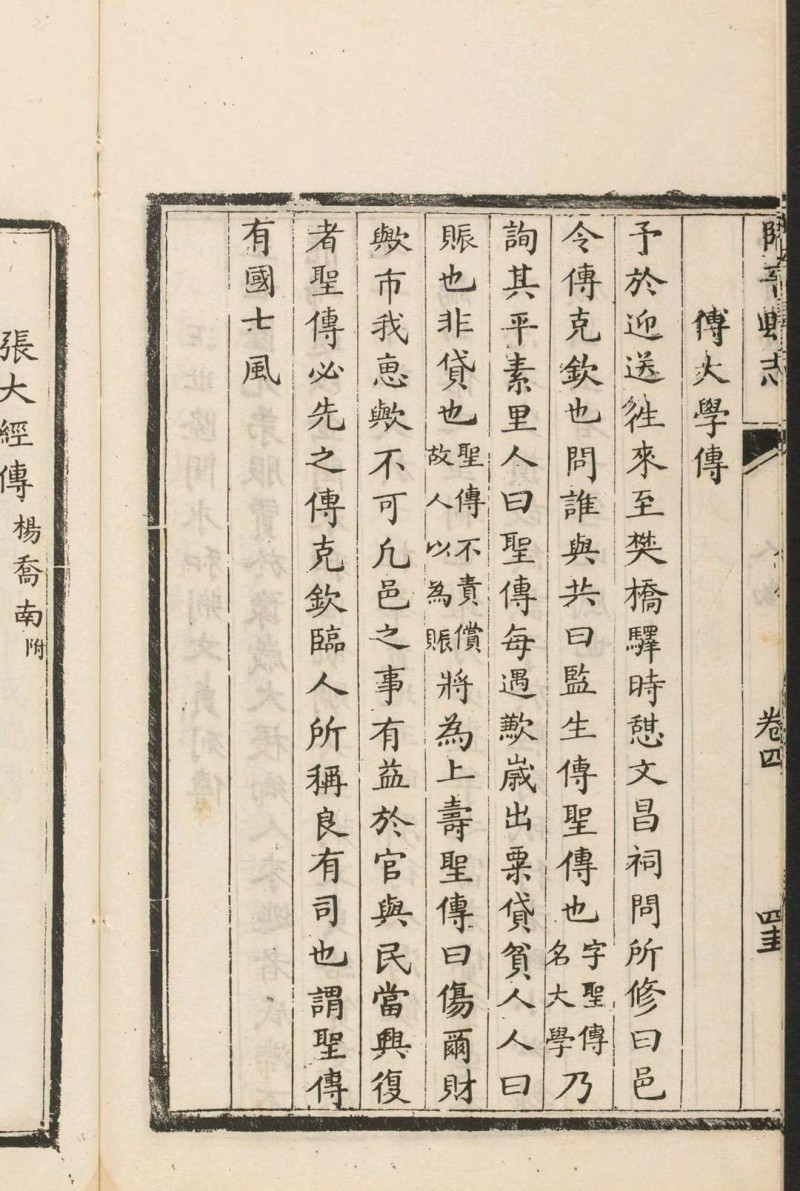 志
卷四
傅大學傳
予於迎送往來至樊橋驛時憇文昌祠問所修曰邑
令傅克欽也問誰與共曰監生傅聖傳也字聖傳名大學乃
詢其平素里人曰聖傳每遇歉歲出粟貸貧人人曰
賑也非貸也聖傳不責償故人以為賑將為上壽聖傳曰傷爾財
歟市我恵歟不可凢邑之事有益於官與民當興復
者聖傳必先之傅克欽臨人所稱良有司也謂聖傳
有國士風
張大經傳 楊喬南附